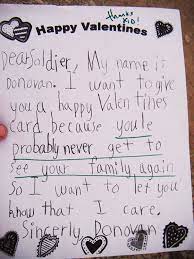 thanks
KID!
Happy Valentines
Dear Soldier, My name is
Donovan. I want to give
you a happy Valentines
card because you'le
probably never get to
see your family again
So I want to let you
know that I care.
Sincerly, Donovan